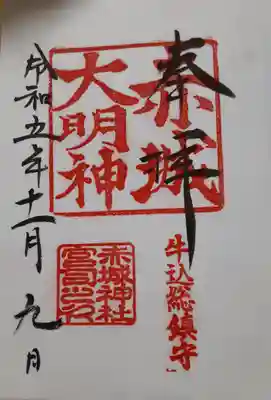 奉拝
赤城
大明神
牛込総鎮守
赤城神社
宮司之印
令和五年十一月九日